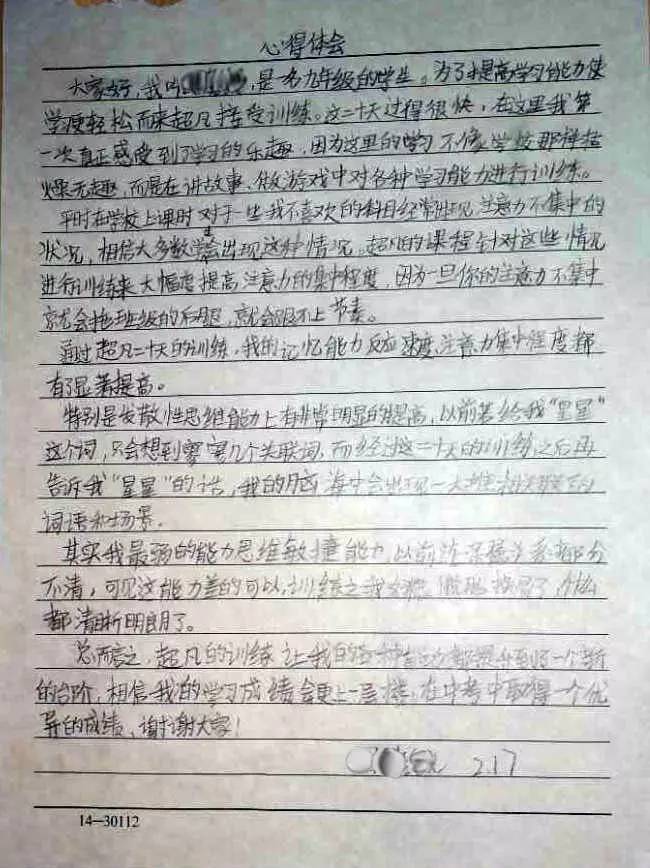 心得体会
大家好,我叫,是一名九年级的学生。为了提高学习能力使
学便轻松而来超凡接受训练。这二十天过得很快,在这里我第
一次真正感受到了学习的乐趣,因为这里的学习不像学校那样枯
燥无趣,而是在讲故事、做游戏中对各种学习能力进行训练。
平时在学校上课时对于一些我不喜欢的科目经常出现注意力不集中的
状况,相信大多数学会出现这种情况。超凡的课程针对这些情况
进行训练来大幅度提高注意力的集中程度,因为一旦你的注意力不集中
就会拖班级的后腿,就会跟不上节奏。
通过超凡二十天的训练,我的记忆能力反应速度、注意力集中程度都
有了显著提高。
特别是发散性思维能力上有非常明显的提高,以前若给我“星星”
这个词,只会想到寥寥几个关联词,而经过这二十天的训练之后再
告诉我“星星”的话,我的脑海中会出现一大堆相关联的
词语和场景.
其实我最弱的能力思维敏捷能力,以前连亲属关系都分
不清,可见这能力差的可以,训练之我,什么
都清晰明朗了。
总而言之,超凡的训练让我的各种能力都提升到了一个新
的台阶,相信我的学习成绩会更上一层楼,在中考中取得一个优
异的成绩,谢谢大家!
2.17
14-30112